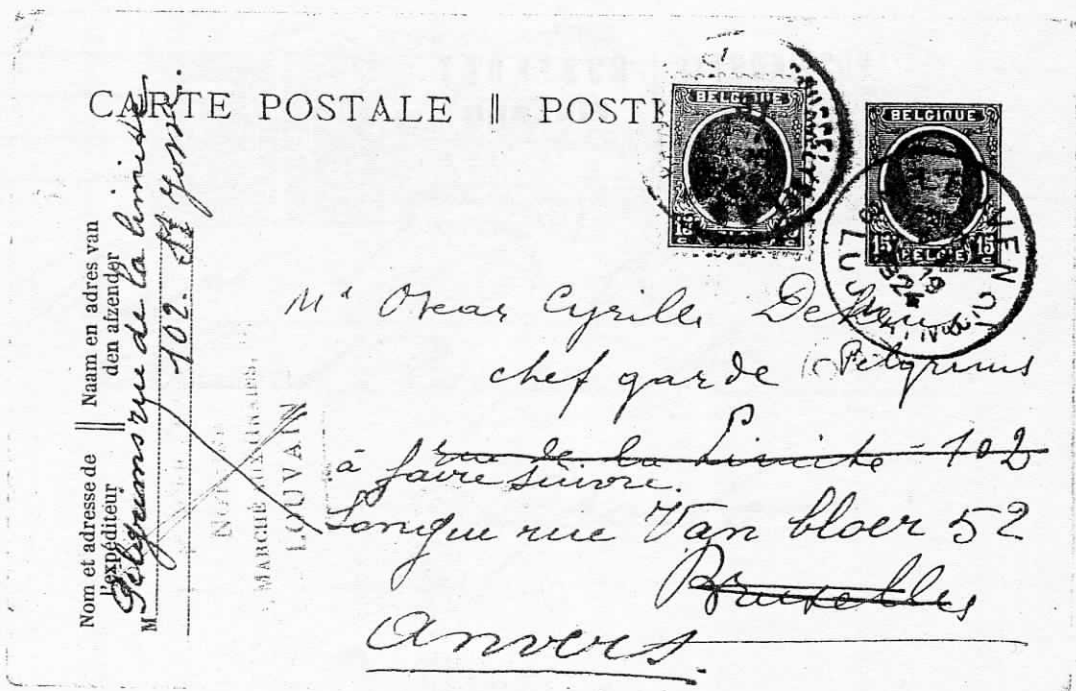 CARTE POSTALE || POSTK
BELGIQUE
BELGIQUE
15 BELGIË 15
Nom et adresse de l'expéditeur || Naam en adres van den afzender
M Pelgrims rue de la limite
102. St Josse.
MARCHÉ
LOUVAIN
Mr Oscar Cyrille
chef garde Pelgrims
rue de la Limite - 102
à faire suivre.
Longue rue Van bloer 52
Bruxelles
Anvers.